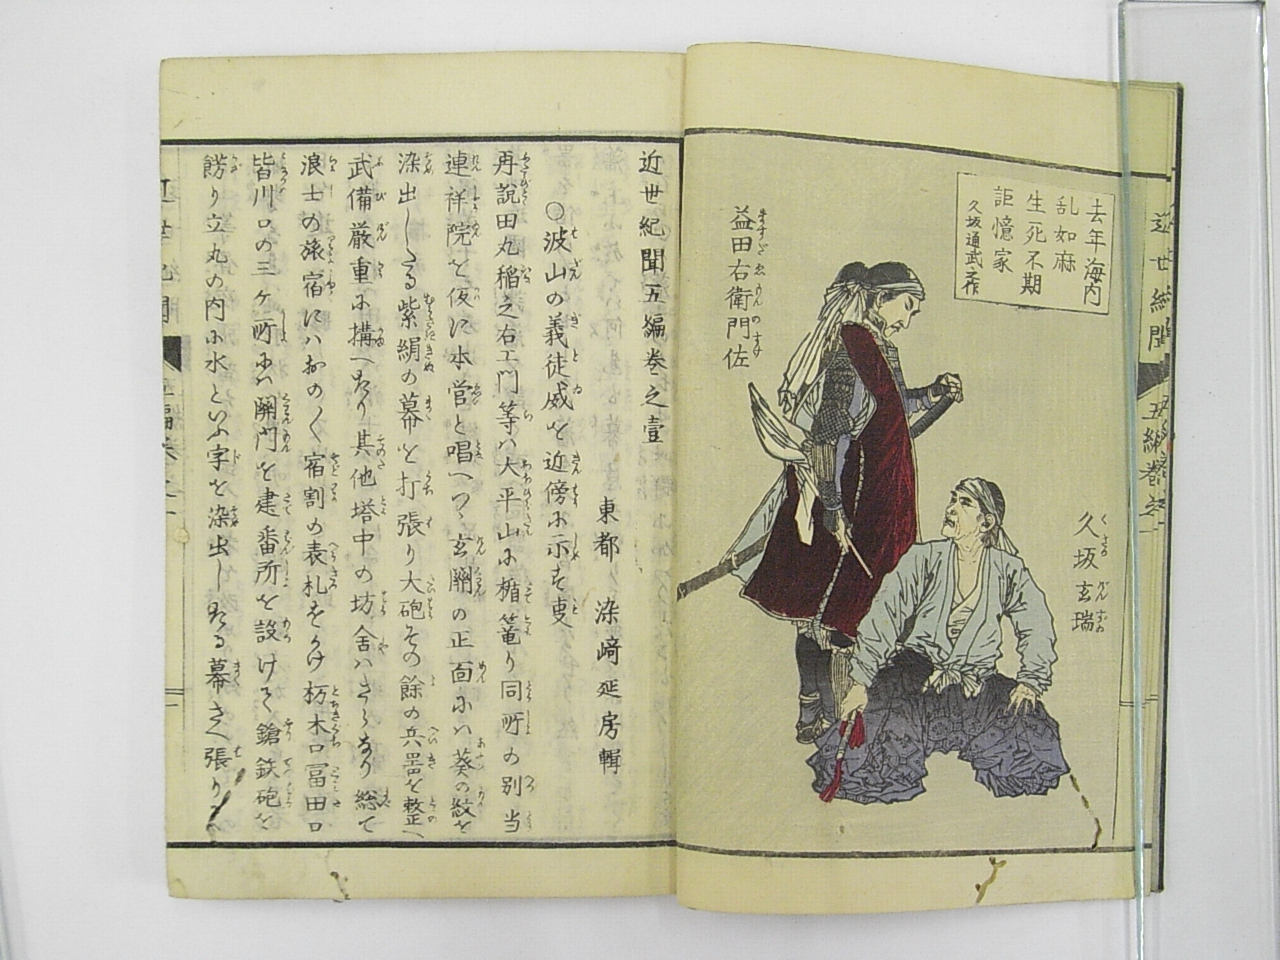 去年海内
乱如麻
生死不期
詎憶家
久坂通武作
益田右衛門佐
ますだゑもんのすけ
久坂玄瑞
くさかげんずゐ
近世紀聞 五編巻之一
近世紀聞五編巻之壹
東都 染崎延房輯
○波山の義徒威を近傍に示す叓
再説田丸稲之右エ門等ハ大平山に楯篭り同所の別当
連祥院を仮に本営と唱へつゝ玄関の正面にハ葵の紋を
染出したる紫絹の幕を打張り大砲その餘の兵器を整へ
武備厳重に搆へたり其他塔中の坊舎ハさらなり総て
浪士の旅宿にハおの〱宿割の表札をかけ栃木口冨田口
皆川口の三ヶ所にハ関門を建番所を設けて鎗鉄砲を
餝り立丸の内に水といふ字を染出したる幕さへ張り